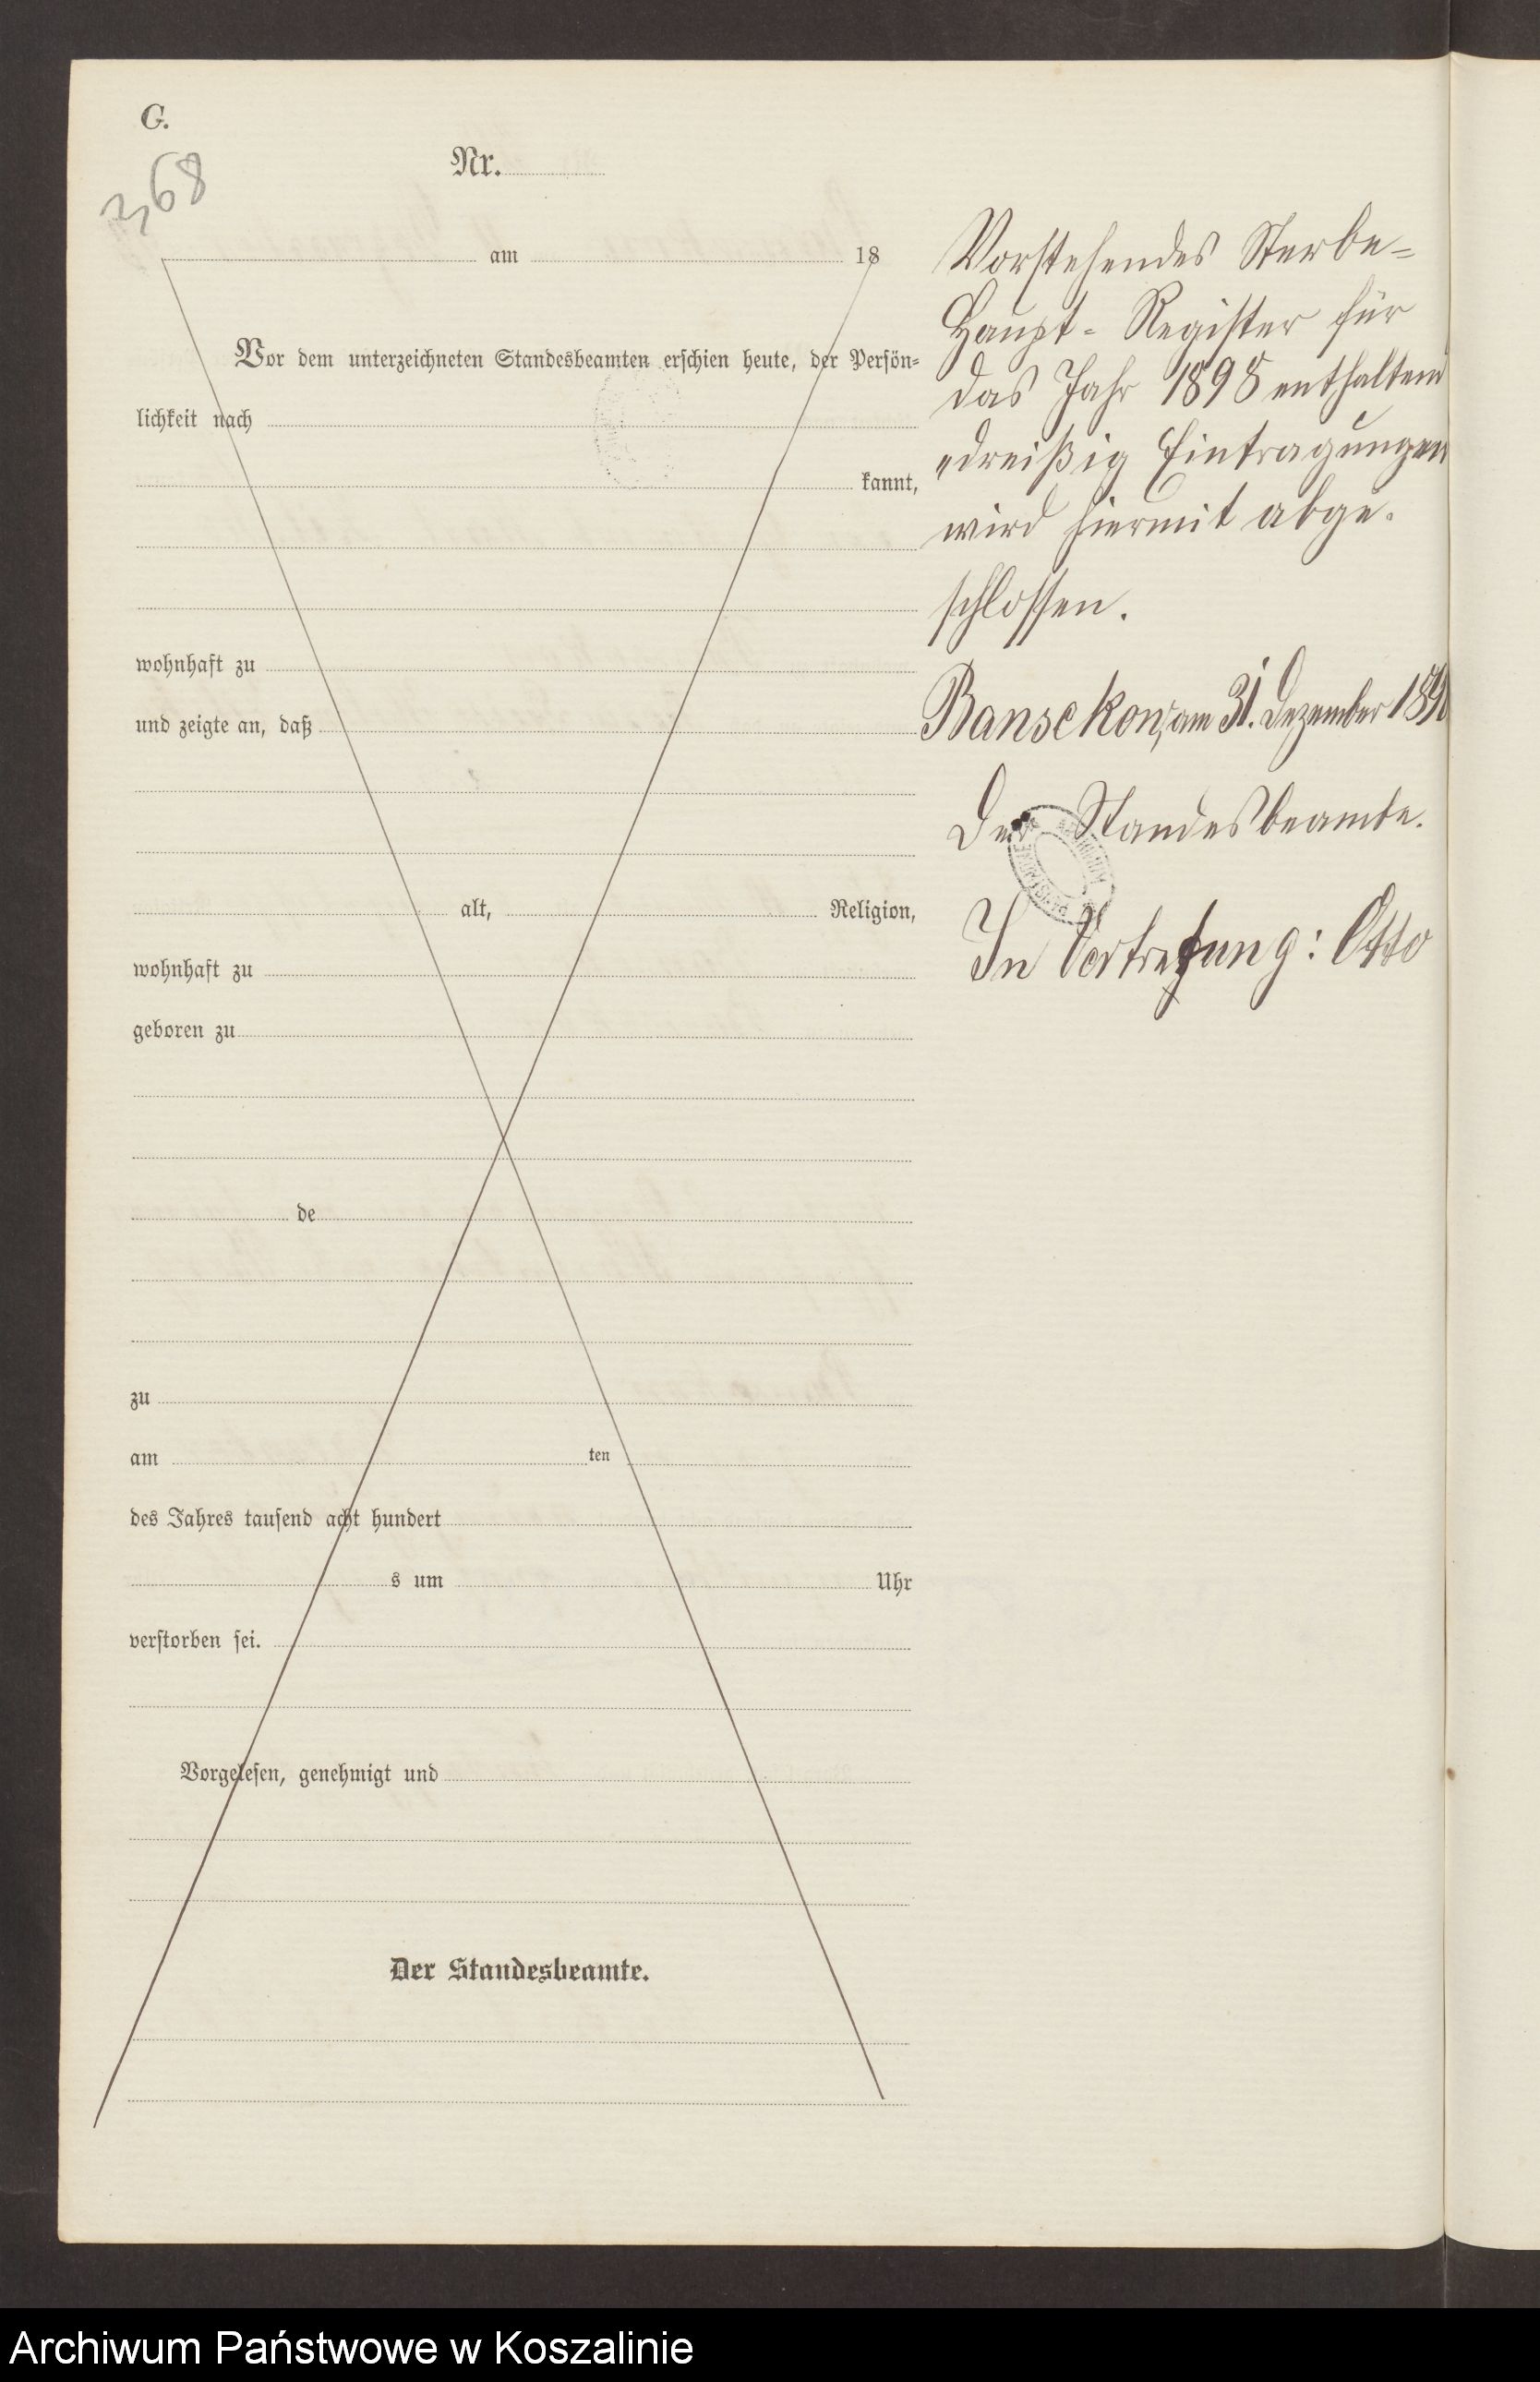 C.
368
Nr.
am 18
Vor dem unterzeichneten Standesbeamten erschien heute, der Persön=
lichkeit nach
kannt,
wohnhaft zu
und zeigte an, daß
alt, Religion,
wohnhaft zu
geboren zu
de
zu
am ten
des Jahres tausend acht hundert
s um Uhr
verstorben sei.
Vorgelesen, genehmigt und
Der Standesbeamte.
Vorstehendes Sterbe=
Haupt- Register für
das Jahr 1898 enthaltend
"dreißig Eintragungen
wird hiermit abge-
schlossen.
Bansekow, am 31. Dezember 1898
Der Standesbeamte.
In Vertretung: Otto
Archiwum Państwowe w Koszalinie